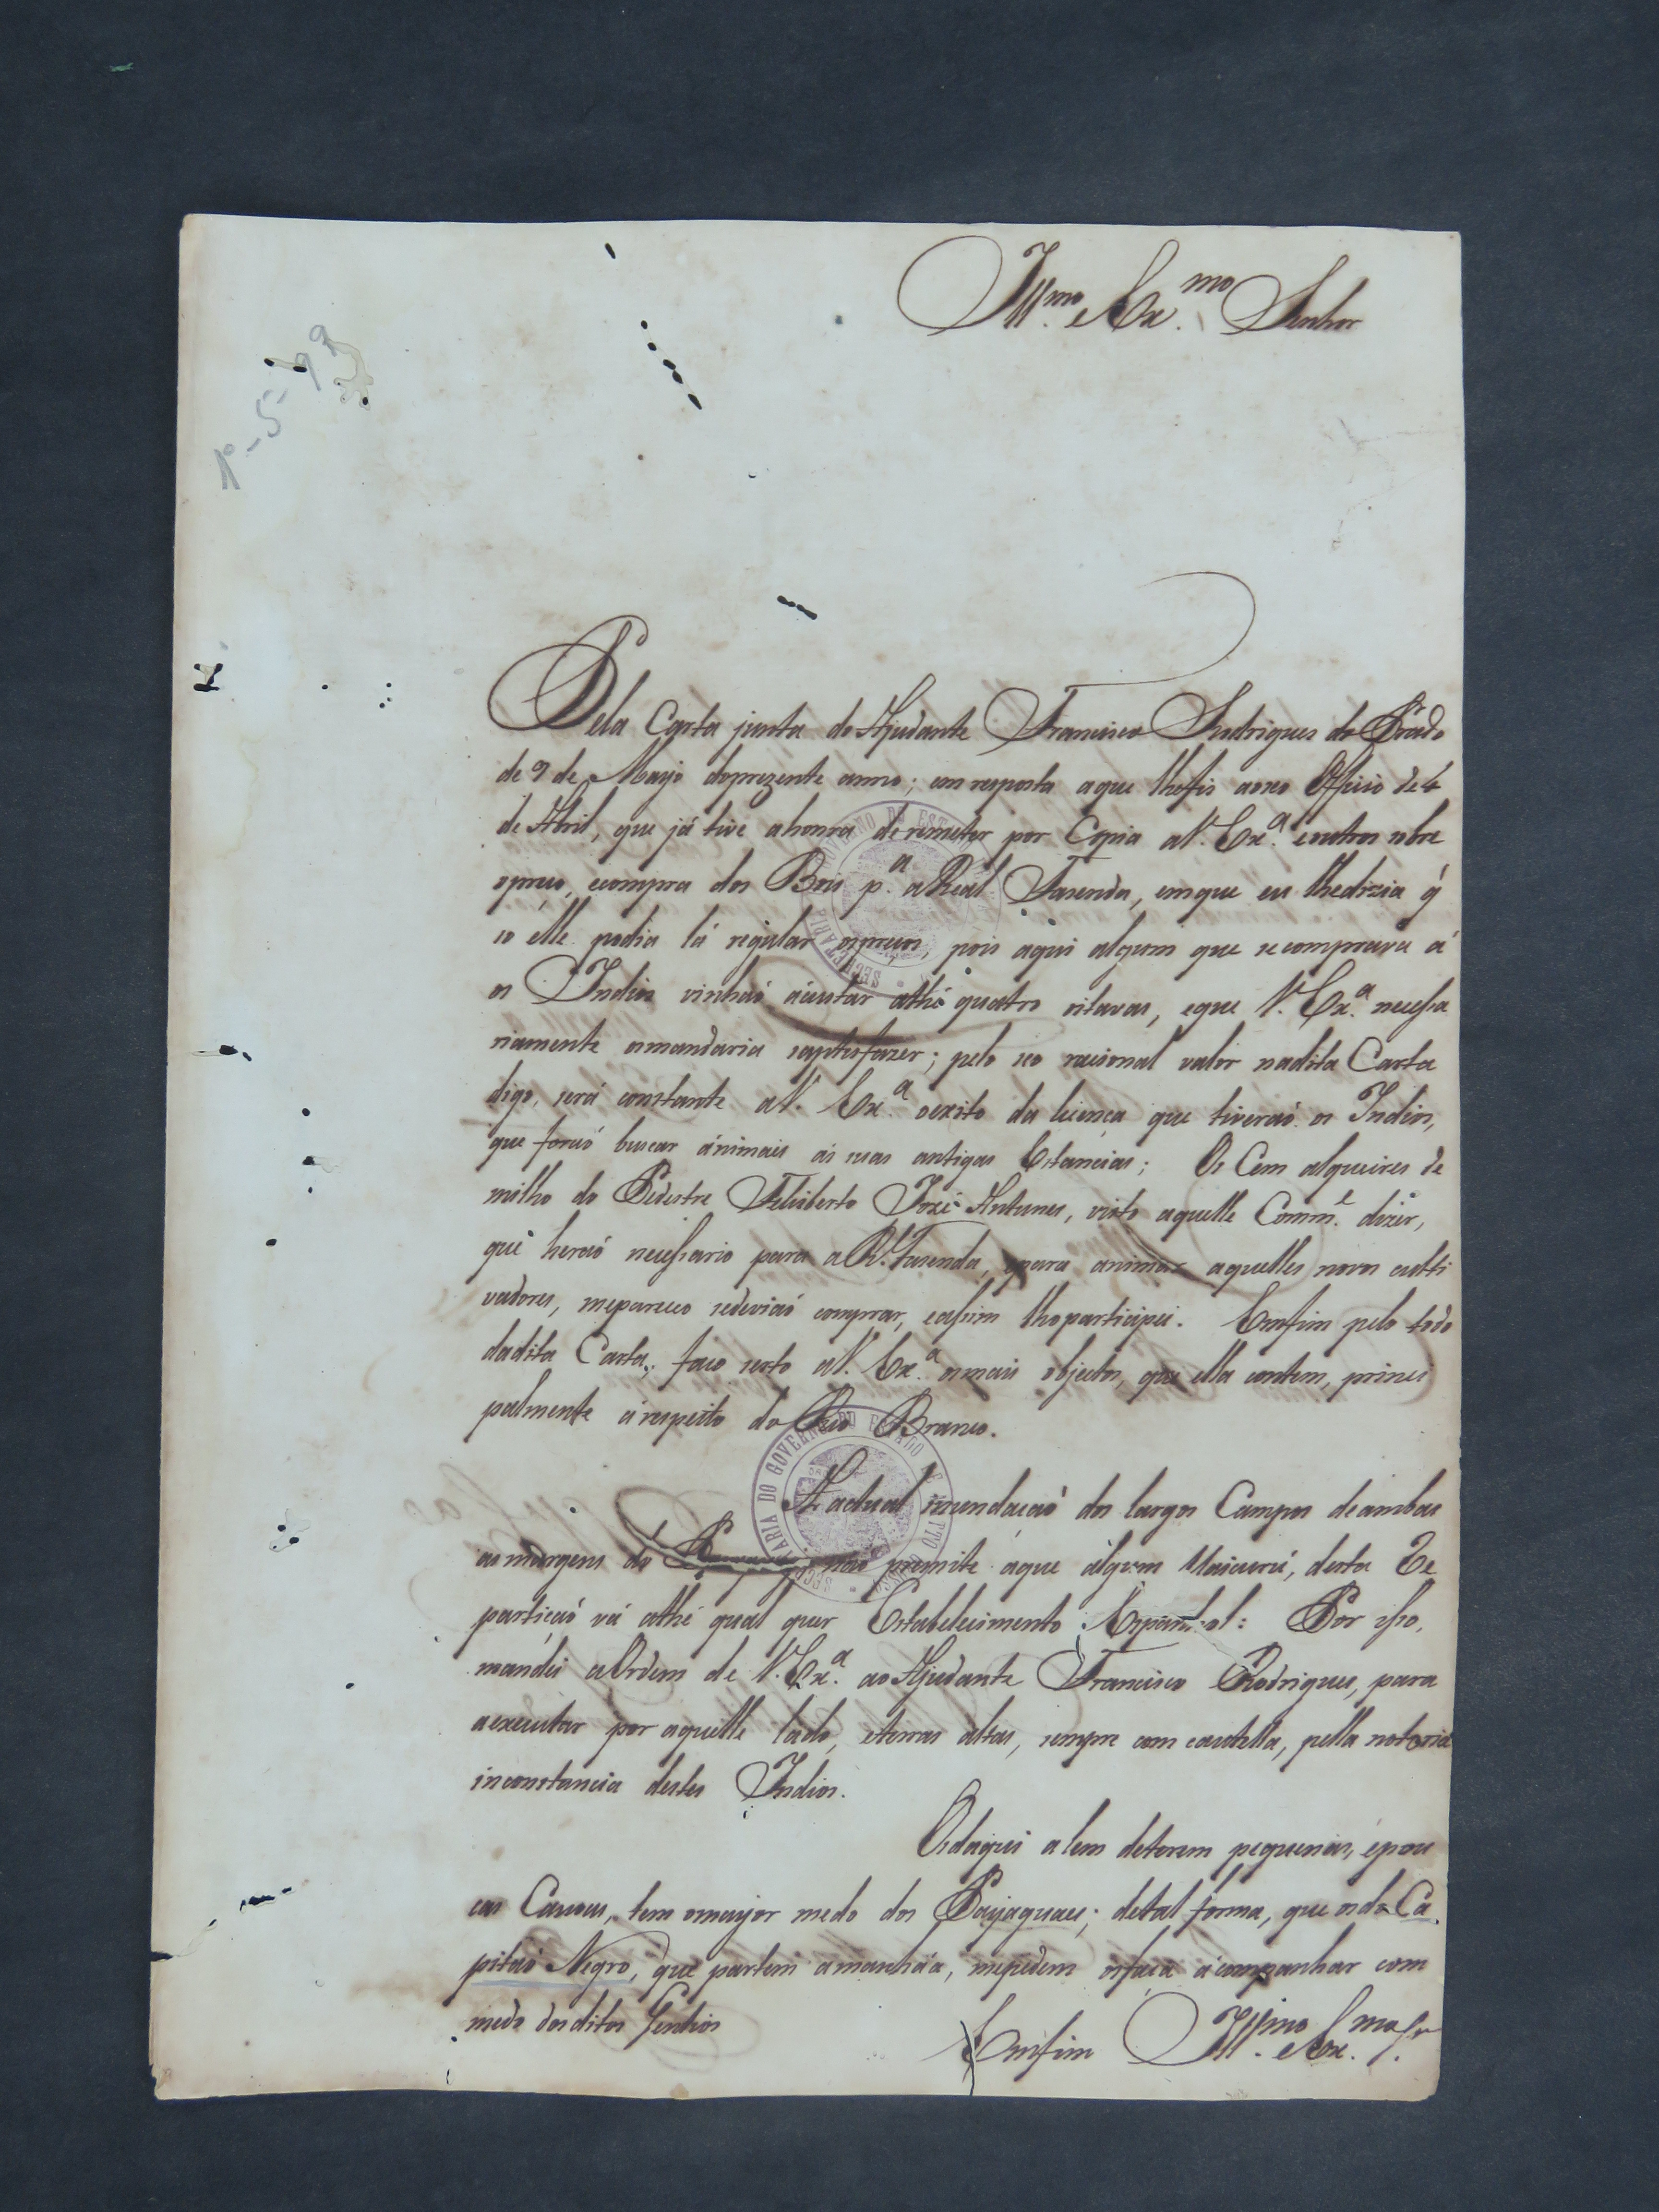 Ill.mo e Ex.mo Senhor
1º-5-93
Pela Carta junta do Ajudante Francisco Rodrigues do Prado
de 9 de Mayo doprezente anno; em resposta aque lhefis aoseo Officio de 4
de Abril, que já tive ahonra deremeter por Copia aV. Ex.a eoutros sobre
opreço, ecompra dos Bois p.a aReal Fasenda, emque eu lhedizia q̃
só elle podia lá regular ospreços, pois aqui algum que secomprava á
os Indios vinhaõ ácustar athé quatro oitavas, eque V. Ex.a necessa
riamente osmandaria saptisfazer; pelo seo racional valor nadita Carta
digo, será constante aV. Ex.a oexito da licença que tiveraõ os Indios,
que foraõ buscar ánimais ás suas antigas Estancias; Os Cem alqueires de
milho do Pedestre Feliberto José Antunes, visto aquelle Comm.e dizer,
que heraõ necessario para aR. Fasenda, epara animar aquelles novos culti
vadores, mepareceo sedeviaõ comprar, eassim lhoparticipei. Emfim pelo todo
dadita Carta, faço serto aV. Ex.a osmais objectos, que ella contem, princi
palmente árespeito do Rio Branco.
A actual inundaçaõ dos largos Campos deambas
as margens do naõ premite aque álgum Uaicurú, desta Re
partiçaõ vá athé qual quer Estabelecimento Espanhol: Por isso,
mandei aOrdem de V. Ex.a ao Ajudante Francisco Rodrigues, para
aexecutar por aquelle lado, eterras altas, sempre com cautella, pella notoria
inconstancia destes Indios.
Osdaqui alem deterem pequenas, epou
cas Canoas, tem omayor medo dos Payaguaes; detal forma, que osdo Ca
pitaõ Negro, que partem ámanháa, mepedem osfaça ácompanhar com
medo dosditos Gentios
Emfim Ill.mo e Ex.mo Sr.
SECRETARIA DO GOVERNO DO ESTADO DE MATTO GROSSO
SECRETARIA DO GOVERNO DO ESTADO DE MATTO GROSSO